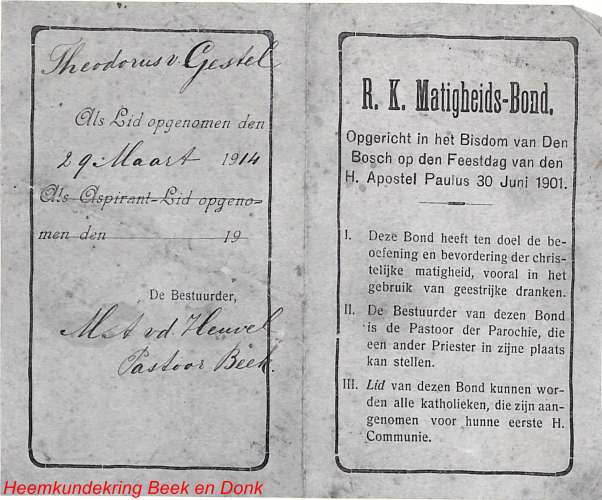 Theodorus v. Gestel
Als Lid opgenomen den
29 Maart 1914
Als Aspirant-Lid opgeno-
men den 19
De Bestuurder,
v.d. Heuvel
Pastoor Beek.
R. K. Matigheids-Bond.
Opgericht in het Bisdom van Den
Bosch op den Feestdag van den
H. Apostel Paulus 30 Juni 1901.
I. Deze Bond heeft ten doel de be-
oefening en bevordering der chris-
telijke matigheid, vooral in het
gebruik van geestrijke dranken.
II. De Bestuurder van dezen Bond
is de Pastoor der Parochie, die
een ander Priester in zijne plaats
kan stellen.
III. Lid van dezen Bond kunnen wor-
den alle katholieken, die zijn aan-
genomen voor hunne eerste H.
Communie.
Heemkundekring Beek en Donk